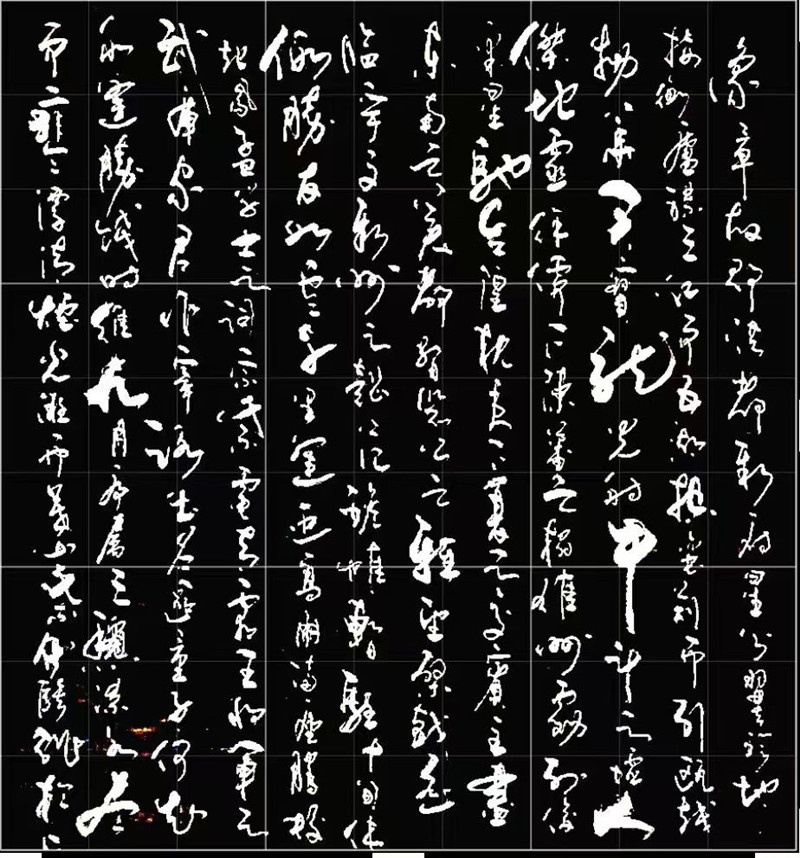 豫章故郡洪都新府星分翼軫地
接衡廬襟三江而五湖控蠻荊而引甌越
物華天寶龍光射牛斗之墟人
傑地靈徐孺下陳蕃之榻雄州霧列俊
采星馳臺隍枕夷夏之交賓主盡
東南之美都督閻公之雅望棨戟遙
臨宇文新州之懿範襜帷暫駐十旬休
假勝友如雲千里逢迎高朋滿座騰蛟
起鳳孟學士之詞宗紫電青霜王將軍之
武庫家君作宰路出名區童子何知
躬逢勝餞時維九月序屬三秋潦水盡
而寒潭清煙光凝而暮山紫儼驂騑於上